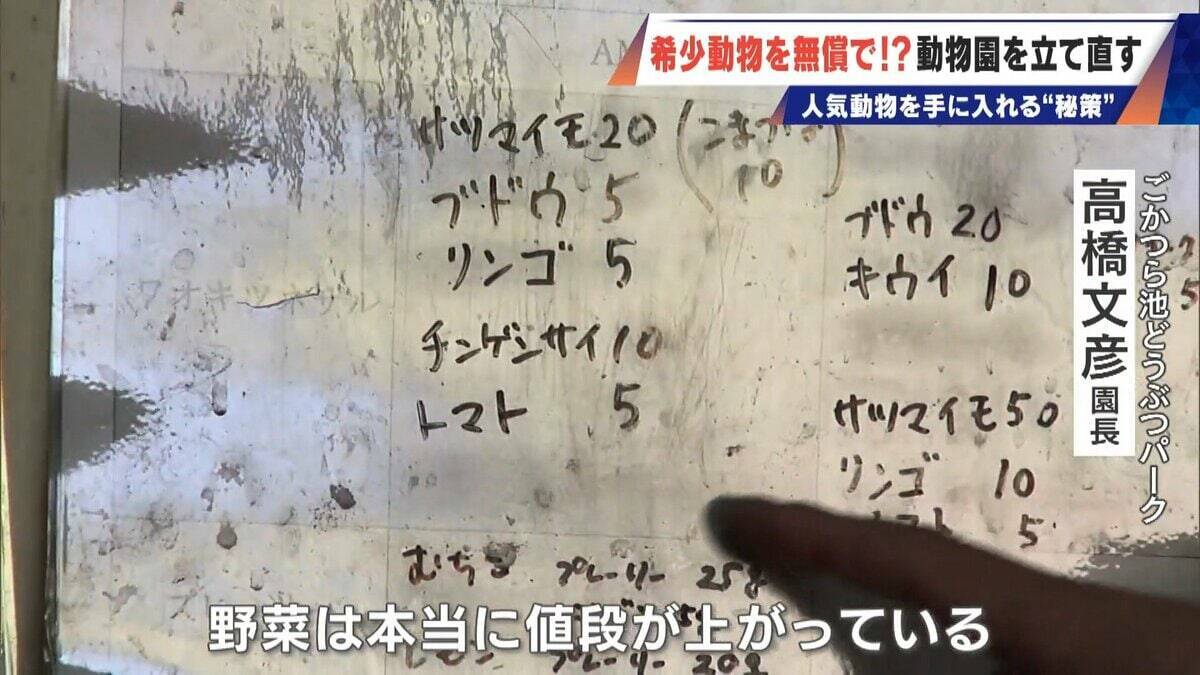 希少動物を無償で!?動物園を立て直す
人気動物を手に入れる“秘策”
ごかつら池どうぶつパーク
高橋文彦 園長
AM
サツマイモ20
10
ブドウ 5
リンゴ 5
ワオキツネザル
チンゲンサイ10
トマト 5
ブドウ 20
キウイ 10
サツマイモ50
リンゴ 10
トマト 5
プレーリー 25g
プレーリー 20g
野菜は本当に値段が上がっている